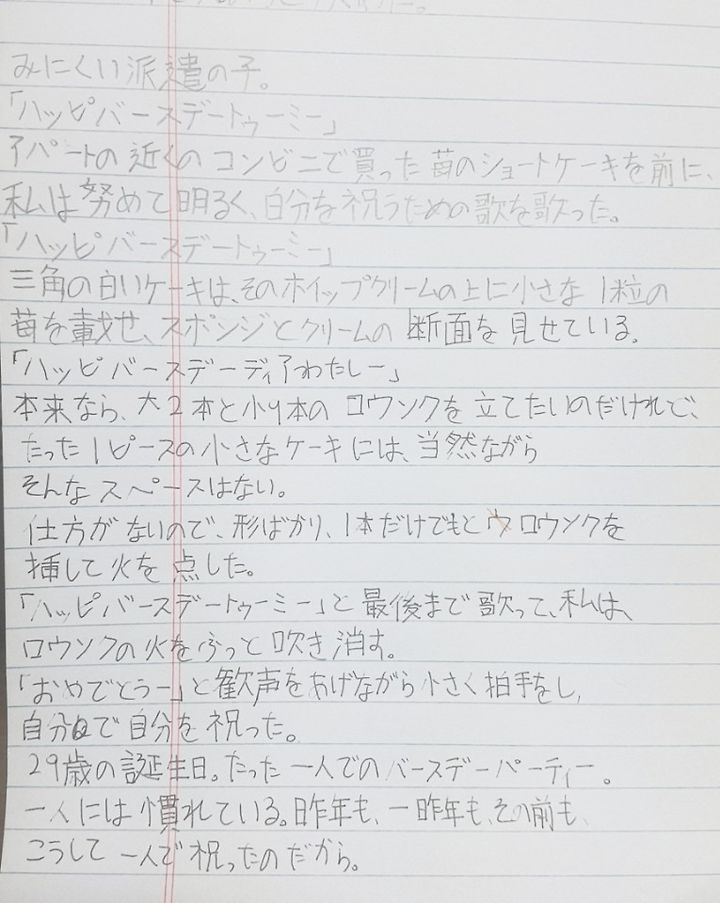 みにくい派遣の子。
「ハッピバースデートゥーミー」
アパートの近くのコンビニで買った苺のショートケーキを前に、
私は努めて明るく、自分を祝うための歌を歌った。
「ハッピバースデートゥーミー」
三角の白いケーキは、そのホイップクリームの上に小さな1粒の
苺を載せ、スポンジとクリームの断面を見せている。
「ハッピバースデーディアわたしー」
本来なら、大2本と小9本のロウソクを立てたいのだけれど、
たった1ピースの小さなケーキには、当然ながら
そんなスペースはない。
仕方がないので、形ばかり、1本だけでもとロウソクを
挿して火を点した。
「ハッピバースデートゥーミー」と最後まで歌って、私は、
ロウソクの火をふっと吹き消す。
「おめでとうー」と歓声をあげながら小さく拍手をし、
自分で自分を祝った。
29歳の誕生日。たった一人でのバースデーパーティー。
一人には慣れている。昨年も、一昨年も、その前も、
こうして一人で祝ったのだから。